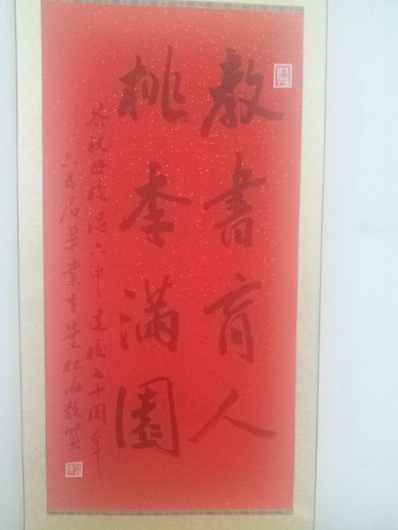 教書育人
桃李滿園
恭祝母校六中建校七十周年
六五届畢業生董松海敬賀